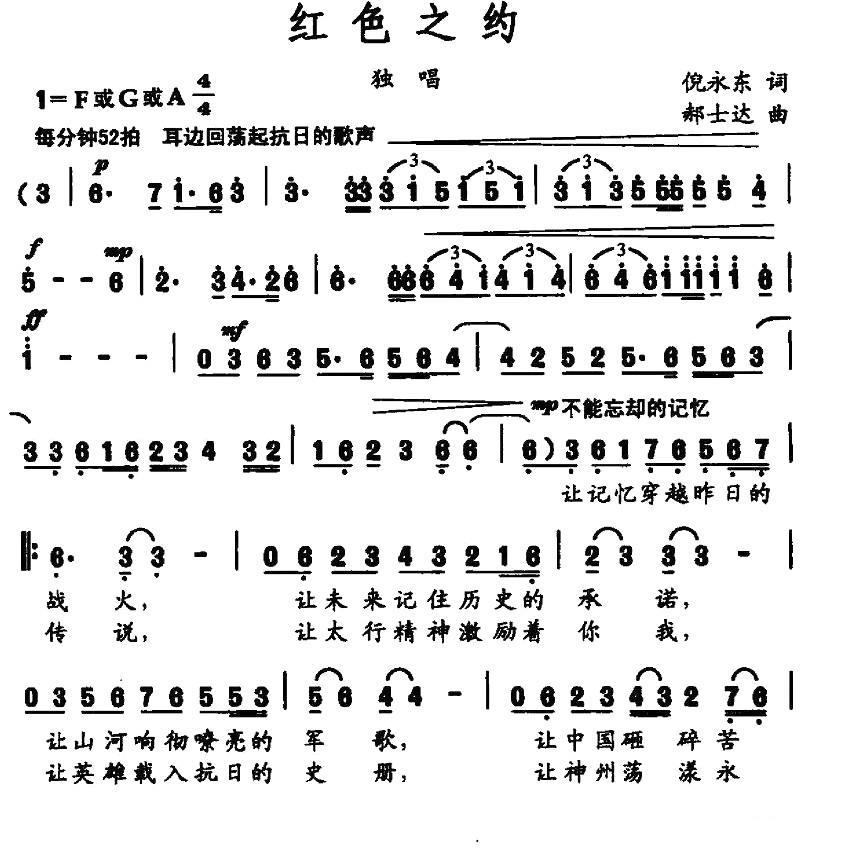 红色之约
独唱
倪永东 词
1=F或G或A 4/4
郝士达 曲
每分钟52拍 耳边回荡起抗日的歌声
p
(3 | 6· 7 1·6 3 | 3· 33 3 1 5 1 5 1 | 3 1 3 5 55 5 5 4 |
f mp
5 - - 6 | 2· 3 4·2 6 | 6· 66 6 4 1 4 1 4 | 6 4 6 1 11 1 1 6 |
ff mf
1 - - - | 0 3 6 3 5· 6 5 6 4 | 4 2 5 2 5· 6 5 6 3 |
mp 不能忘却的记忆
3 3 6 1 6 2 3 4 3 2 | 1 6 2 3 6 6 | 6 ) 3 6 1 7 6 5 6 7 |
让记忆穿越昨日的
6· 3 3 - | 0 6 2 3 4 3 2 1 6 | 2 3 3 3 - |
战 火, 让未来记住历史的 承 诺,
传 说, 让太行精神激励着 你 我,
0 3 5 6 7 6 5 5 3 | 5 6 4 4 - | 0 6 2 3 4 3 2 7 6 |
让山河响彻嘹亮的 军 歌, 让中国砸 碎苦
让英雄载入抗日的 史 册, 让神州荡 漾永